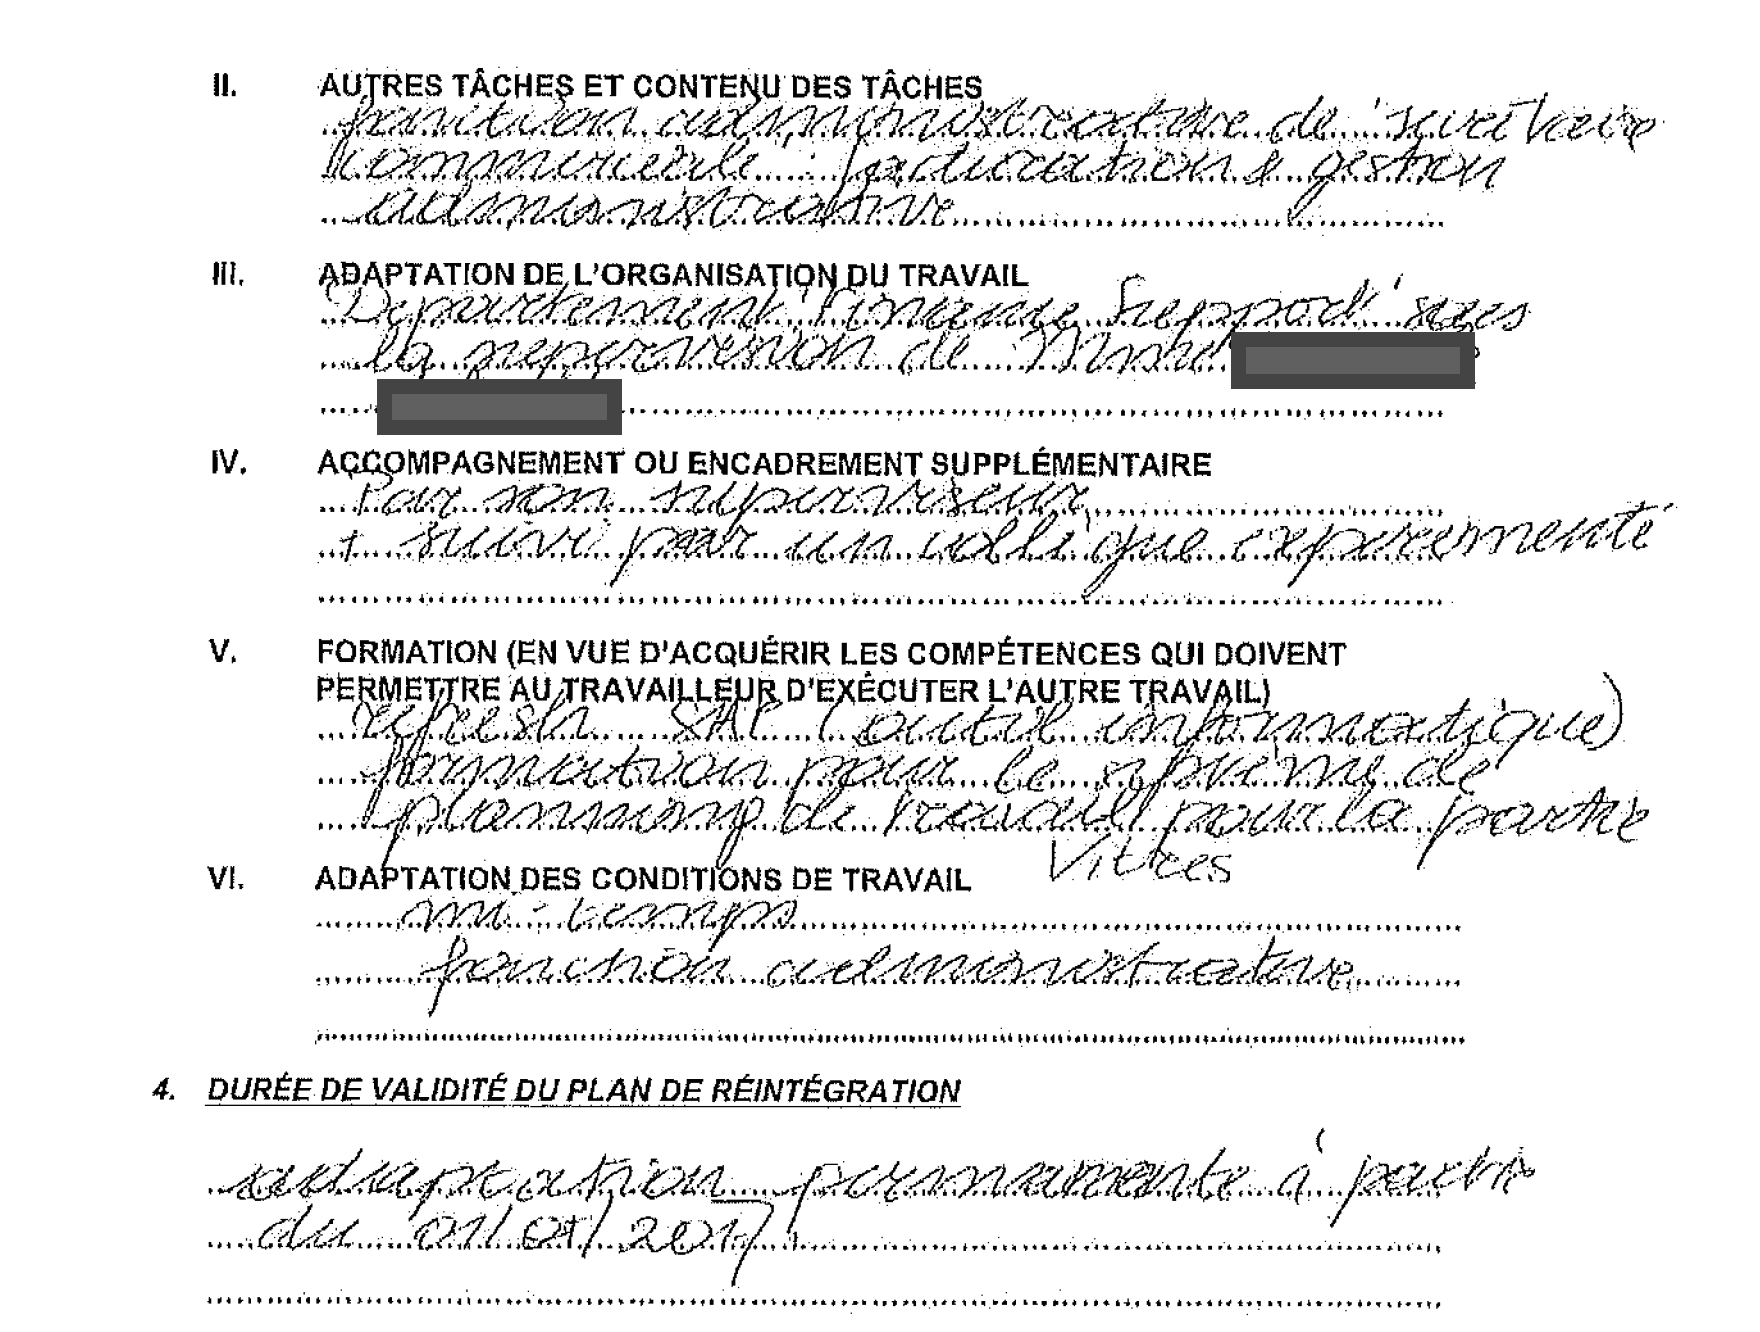 II. AUTRES TÂCHES ET CONTENU DES TÂCHES
fonction administrative de secrétaire
commerciale : facturation & gestion
administrative
III. ADAPTATION DE L'ORGANISATION DU TRAVAIL
Département Finance Support sous
la supervision de Mme
IV. ACCOMPAGNEMENT OU ENCADREMENT SUPPLÉMENTAIRE
Par son superviseur
+ suivi par un collègue expérimenté
V. FORMATION (EN VUE D'ACQUÉRIR LES COMPÉTENCES QUI DOIVENT
PERMETTRE AU TRAVAILLEUR D'EXÉCUTER L'AUTRE TRAVAIL)
refresh SAP (outil informatique)
formation pour le système de
planning de travail pour la partie
Vitres
VI. ADAPTATION DES CONDITIONS DE TRAVAIL
mi-temps
fonction administrative
4. DURÉE DE VALIDITÉ DU PLAN DE RÉINTÉGRATION
adaptation permanente à partir
du 01/ /2017